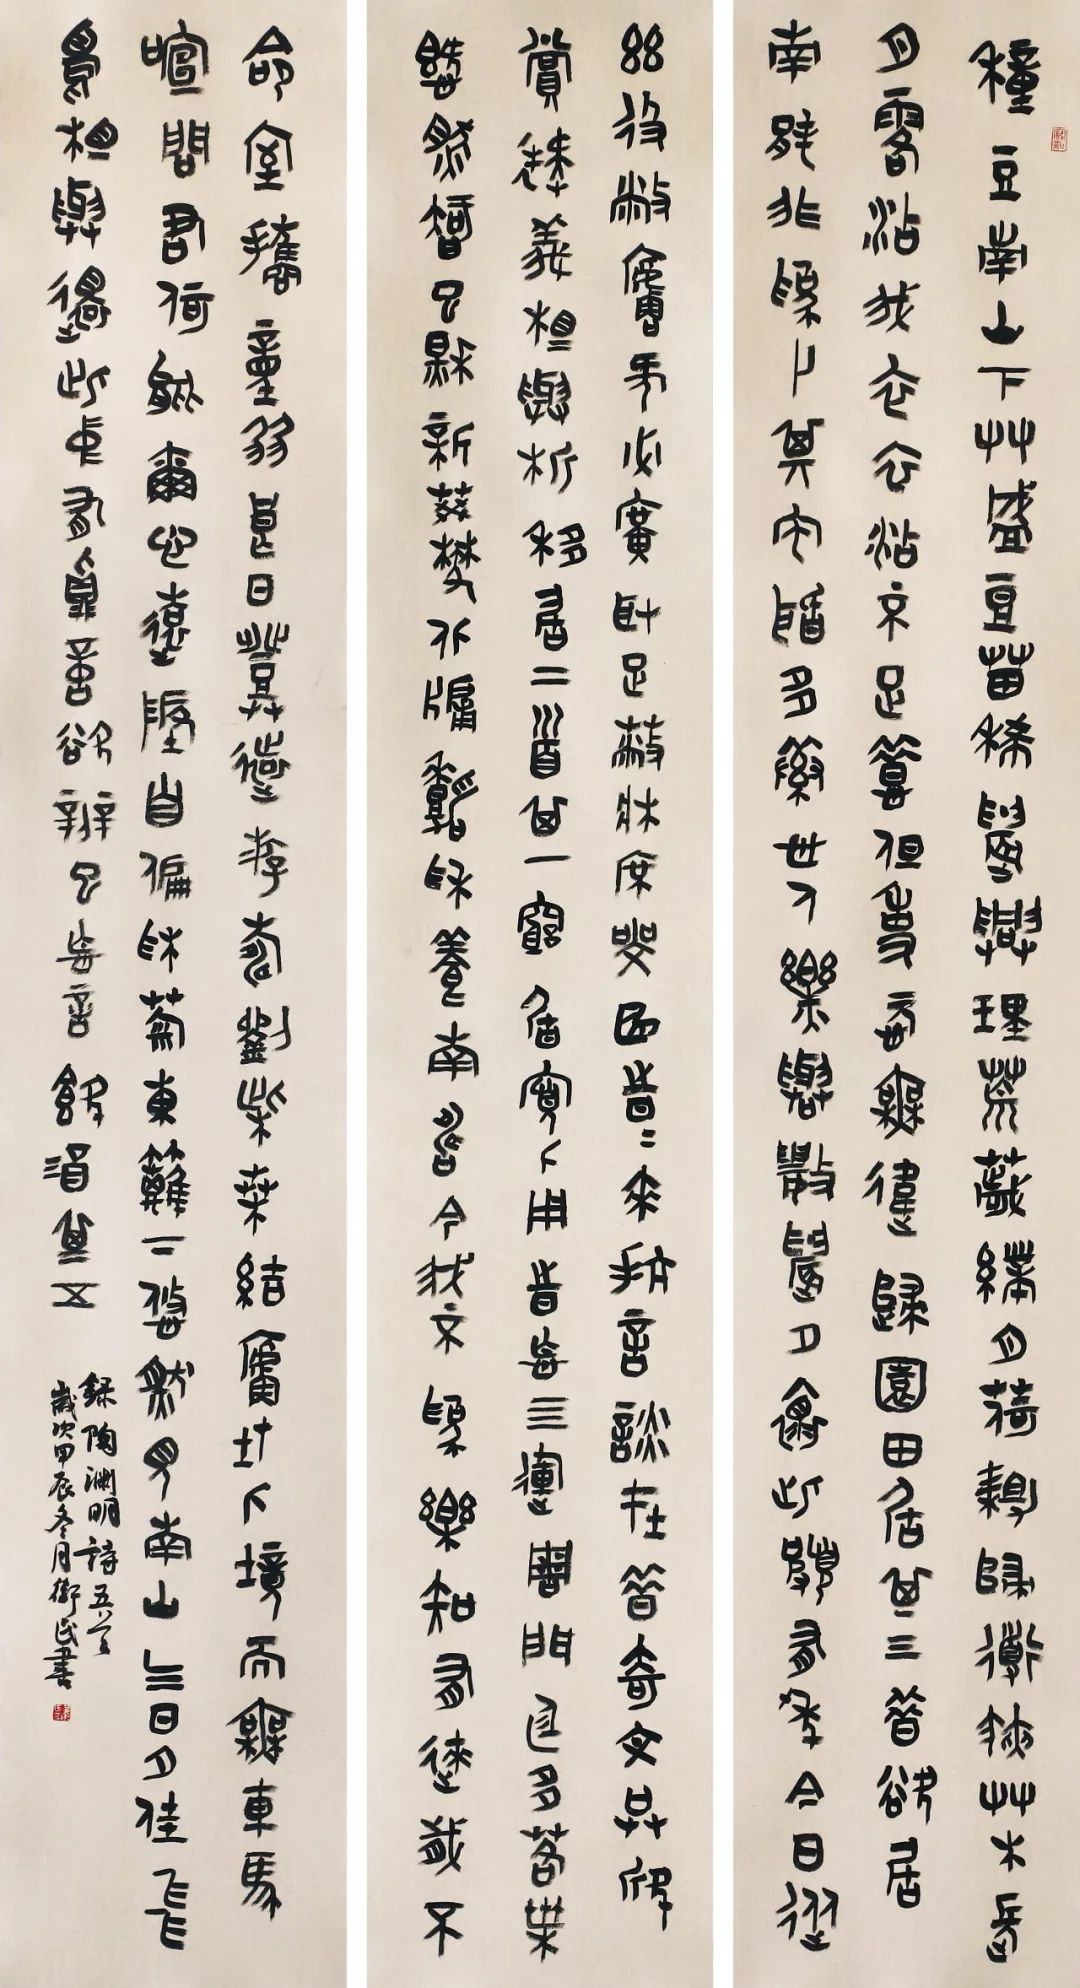 種豆南山下草盛豆苗稀晨興理荒穢帶月荷鋤歸道狹草木長
夕露沾我衣衣沾不足惜但使願無違歸園田居其三昔欲居
南村非為卜其宅聞多素心人樂與數晨夕懷此頗有年今日從
茲役弊廬何必廣取足蔽床席鄰曲時時來抗言談在昔奇文共欣
賞疑義相與析移居二首其一窮居寡人用時忘四運周門庭多落葉
慨然知已秋新葵鬱北牖嘉穟養南疇今我不為樂知有來歲不
命室攜童弱良日登遠遊和劉柴桑結廬在人境而無車馬
喧問君何能爾心遠地自偏採菊東籬下悠然見南山氣日夕佳飛
鳥相與還此中有真意欲辨已忘言飲酒其五
錄陶淵明詩五首
歲次甲辰冬月衛民書